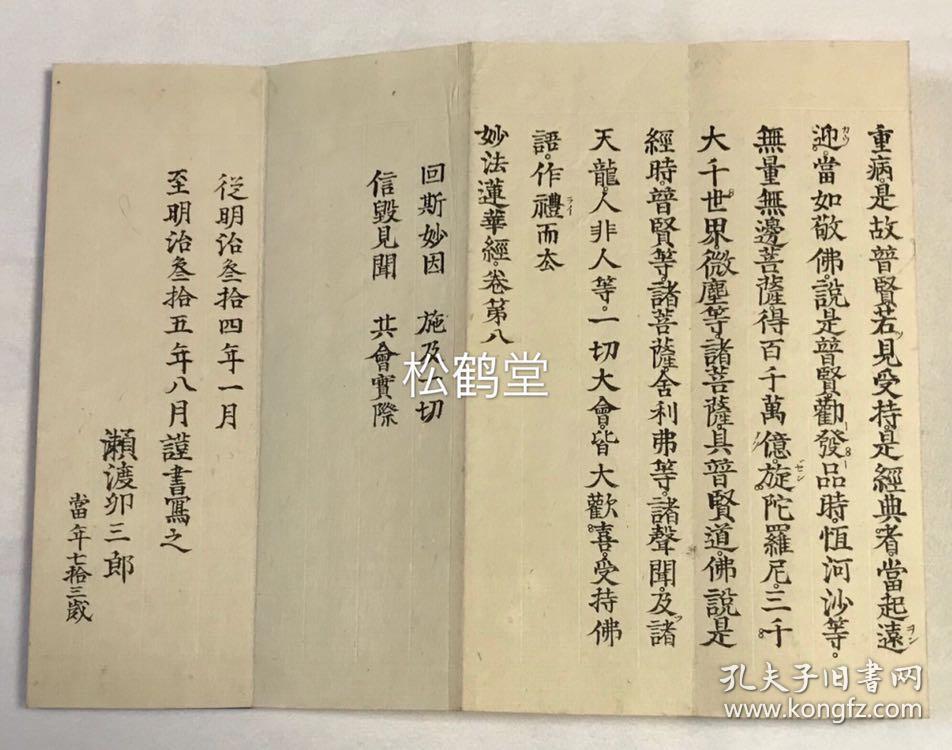 重病。是故普賢。若見受持。是經典者。當起遠
迎。當如敬佛。說是普賢。勸發品時。恆河沙等。
無量無邊菩薩。得百千萬億。旋陀羅尼。三千
大千世界。微塵等。諸菩薩。具普賢道。佛說是
經時。普賢等。諸菩薩。舍利弗等。諸聲聞。及諸
天龍。人非人等。一切大會。皆大歡喜。受持佛
語。作禮而去
妙法蓮華經。卷第八
回斯妙因　施及一切
信毀見聞　共會實際
從明治叄拾四年一月
至明治叄拾五年八月謹書寫之
瀬渡卯三郎
當年七拾三歲
松鹤堂
孔夫子旧书网
www.kongfz.com